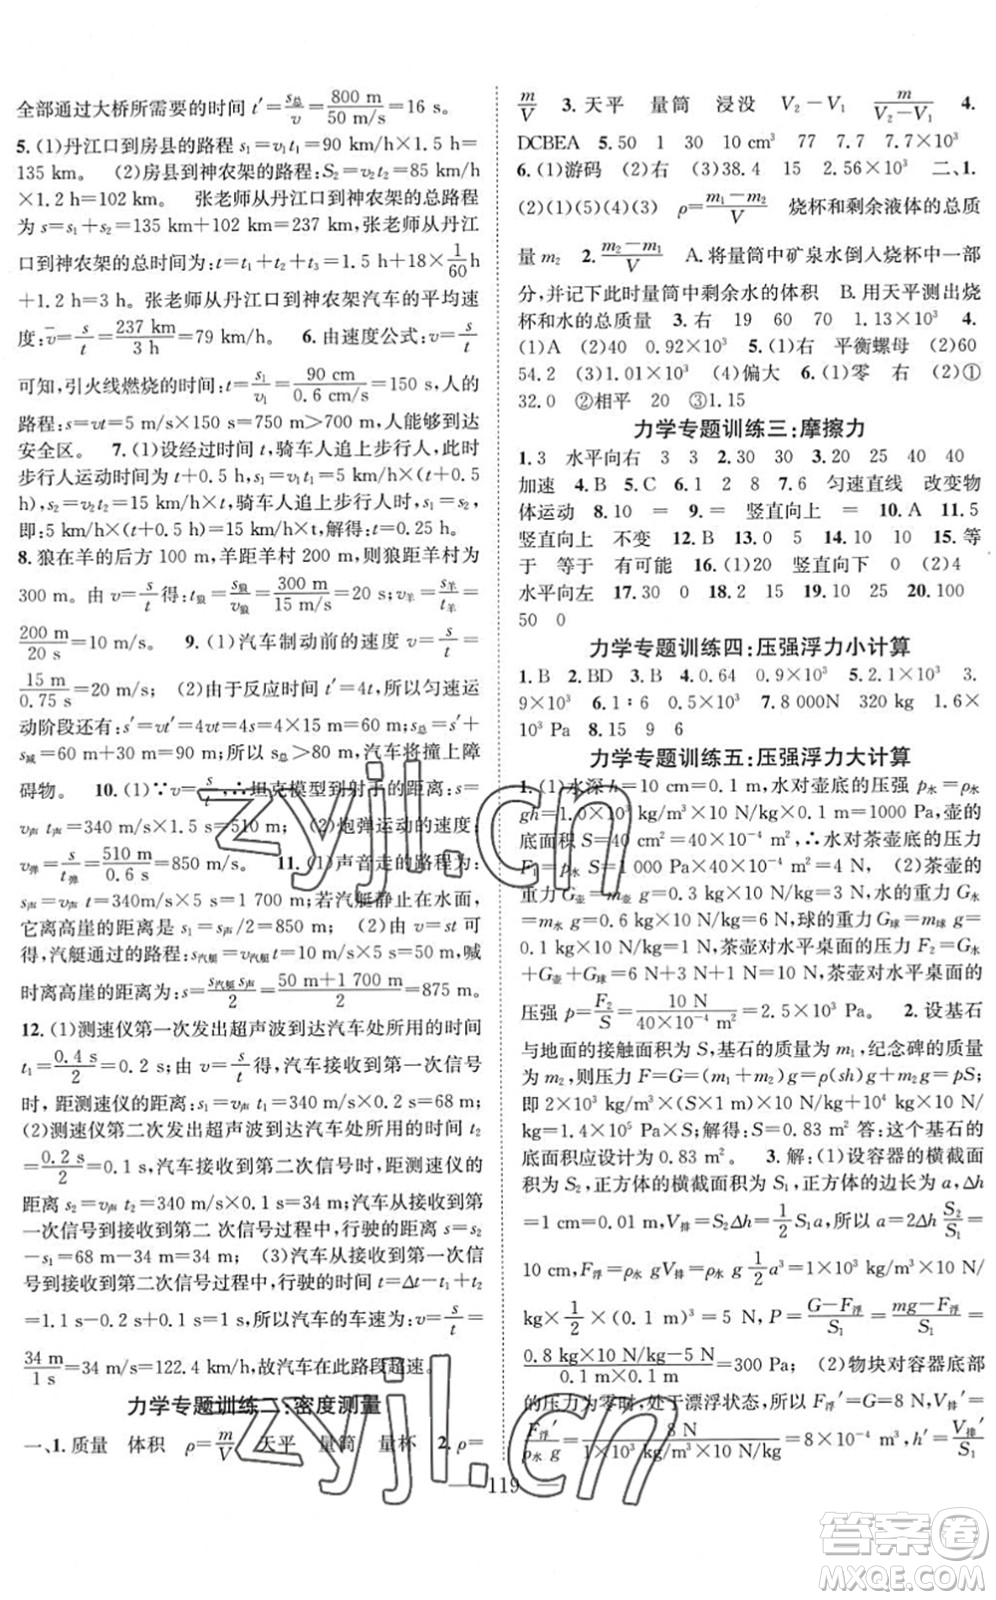 全部通过大桥所需要的时间 t′=s总/v=800 m/50 m/s=16 s。
5.(1)丹江口到房县的路程 s₁=v₁t₁=90 km/h×1.5 h=
135 km。 (2)房县到神农架的路程:S₂=v₂t₂=85 km/h
×1.2 h=102 km。 张老师从丹江口到神农架的总路程
为 s=s₁+s₂=135 km+102 km=237 km,张老师从丹江
口到神农架的总时间为:t=t₁+t₂+t₃=1.5 h+18×1/60 h
+1.2 h=3 h。张老师从丹江口到神农架汽车的平均速
度:v̄=s/t=237 km/3 h=79 km/h。 6.由速度公式:v=s/t
可知,引火线燃烧的时间:t=s₁/v₁=90 cm/0.6 cm/s=150 s,人的
路程:s=vt=5 m/s×150 s=750 m>700 m,人能够到达
安全区。 7.(1)设经过时间 t,骑车人追上步行人,此时
步行人运动时间为 t+0.5 h,则:s₁=v₁t₁=5 km/h×(t+0.5
h),s₂=v₂t₂=15 km/h×t,骑车人追上步行人时,s₁=s₂,
即:5 km/h×(t+0.5 h)=15 km/h×t,解得:t=0.25 h。
8.狼在羊的后方 100 m,羊距羊村 200 m,则狼距羊村有
300 m。由 v=s/t得:t狼=s狼/v狼=300 m/15 m/s=20 s,v羊=s羊/t羊=
200 m/20 s=10 m/s。 9.(1)汽车制动前的速度 v=s/t=
15 m/0.75 s=20 m/s; (2)由于反应时间 t′=4t,所以匀速运
动阶段还有:s′=vt′=4vt=4s=4×15 m=60 m;s总=s′+
s减=60 m+30 m=90 m;所以 s总>80 m,汽车将撞上障
碍物。 10.(1)∵v=s/t,∴坦克模型到射击目标的距离:s=
v声t声=340 m/s×1.5 s=510 m; (2)炮弹运动的速度:
v弹=s/t弹=510 m/0.6 s=850 m/s。 11.(1)声音走的路程为:
s声=v声t=340m/s×5 s=1 700 m;若汽艇静止在水面,
它离高崖的距离是 s₁=s声/2=850 m。 (2)由 v=s/t可
得,汽艇通过的路程:s汽艇=v汽艇t=10 m/s×5 s=50 m,喊
时离高崖的距离为:s=s汽艇+s声/2=50 m+1 700 m/2=875 m。
12.(1)测速仪第一次发出超声波到达汽车处所用的时间
t₁=0.4 s/2=0.2 s。由 v=s/t得,汽车接收到第一次信号
时,距测速仪的距离:s₁=v声t₁=340 m/s×0.2 s=68 m;
(2)测速仪第二次发出超声波到达汽车处所用的时间 t₂
=0.2 s/2=0.1 s,汽车接收到第二次信号时,距测速仪的
距离 s₂=v声t₂=340 m/s×0.1 s=34 m。汽车从接收到第
一次信号到接收到第二 次信号过程中,行驶的距离 s=s₂
-s₁=68 m-34 m=34 m; (3)汽车从接收到第一次信
号到接收到第二次信号过程中,行驶的时间 t=Δt-t₁+t₂
=1.1 s-0.2 s+0.1 s=1 s。汽车的车速为:v=s/t=
34 m/1 s=34 m/s=122.4 km/h,故汽车在此路段超速。
力学专题训练二:密度测量
一、1.质量 体积 ρ=m/V 天平 量筒 量杯 2.ρ=
m/V 3.天平 量筒 浸没 V₂-V₁ m/V₂-V₁ 4.
DCBEA 5.50 1 10 cm³ 77 7.7 7.7×10³
6.(1)游码 (2)右 (3)38.4 15 2.56×10³ 二、1.
(2)(1)(5)(4)(3) ρ=m₁-m₂/V 烧杯和剩余液体的总质
量 m₂ 2.m₂-m₁/V A.将量筒中矿泉水倒入烧杯中一部
分,并记下此时量筒中剩余水的体积 B.用天平测出烧
杯和水的总质量 3.右 19 60 70 1.13×10³ 4.
(1)A (2)40 0.92×10³ 5.(1)右 平衡螺母 (2)60
54.2 (3)1.01×10³ (4)偏大 6.(1)零 右 (2)①
32.0 ②相平 20 ③1.15
力学专题训练三:摩擦力
1.3 水平向右 3 3 2.30 30 3.20 25 40 40
加速 4.B 5.C 6.1 2 8 7.6 匀速直线 改变物
体运动 8.10 = = 9.= 竖直向上 10.A 11.5
竖直向上 不变 12.B 13.0 2 14.100 100 15.等
于 等于 有可能 16.(1)20 竖直向下 (2)4
水平向左 17.30 0 18.2 0 19.15 20.100
50 0
力学专题训练四:压强浮力小计算
1.B 2.BD 3.B 4.0.64 0.9×10³ 5.2×10³ 3.
9×10³ 6.1∶6 0.5×10³ 7.8 000N 320 kg 1.6×
10⁵ Pa 8.15 9 6
力学专题训练五:压强浮力大计算
1.(1)水深 h=10 cm=0.1 m,水对壶底的压强 p水=ρ水
gh=1.0×10³ kg/m³×10 N/kg×0.1 m=1000 Pa,壶的
底面积 S=40 cm²=40×10⁻⁴ m²,∴水对茶壶底的压力
F=p水S=1 000 Pa×40×10⁻⁴ m²=4 N; (2)茶壶的
重力 G壶=m壶g=0.3 kg×10 N/kg=3 N,水的重力 G水
=m水g=0.6 kg×10 N/kg=6 N,球的重力 G球=m球g=
0.1 kg×10 N/kg=1 N,茶壶对水平桌面的压力 F₂=G水
+G壶+G球=6 N+3 N+1 N=10 N,茶壶对水平桌面的
压强 p=F₂/S=10 N/40×10⁻⁴ m²=2.5×10³ Pa。 2.设基石
与地面的接触面积为 S,基石的质量为 m₁,纪念碑的质量
为 m₂,压力 F=G=(m₁+m₂)g=ρ(sh)g+m₂g=pS;
即 2×10³ kg/m³×(S×1 m)×10 N/kg+10⁴ kg×10 N/kg
=1.4×10⁵ Pa×S;解得:S=0.83 m² 答:这个基石的
底面积应设计为 0.83 m²。 3.解:(1)设容器的横截面
积为 S₂,正方体的横截面积为 S₁,正方体的边长为 a,Δh
=1 cm=0.01 m,V排=S₂Δh=1/2S₁a,所以 a=2Δh S₂/S₁=
10 cm,F浮=ρ水gV排=ρ水g 1/2a³=1×10³ kg/m³×10 N/
kg×1/2×(0.1 m)³=5 N, P=G-F浮/S₁=mg-F浮/S₁=
0.8 kg×10 N/kg-5 N/0.1 m×0.1 m=300 Pa; (2)物块对容器底部
的压力恰好为零时,处于漂浮状态,所以 F浮′=G=8 N,V排
=F浮′/ρ水g=8 N/1×10³ kg/m³×10 N/kg=8×10⁻⁴ m³,h′=V排/S₁
— 119 —
zyjl.cn
zyjl.cn
答案圈
MXQE.COM